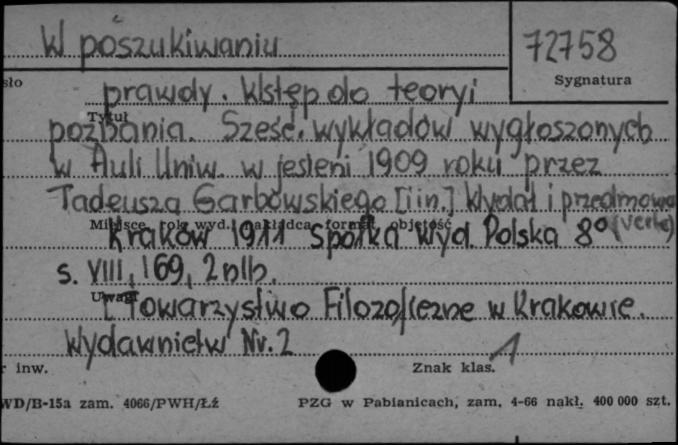 W poszukiwaniu
72758
sło
Sygnatura
prawdy. Wstęp do teoryi
Tytuł
poznania. Sześć wykładów wygłoszonych
w Auli Uniw. w jesieni 1909 roku przez
Tadeusza Garbowskiego [i in.] Wydał i przedmową
Miejsce, rok wyd., nakładca, format, objętość
Kraków 1911 Spółka Wyd. Polska 8°
s. VIII, 169, 2 nlb.
Uwagi
[Towarzystwo Filozoficzne w Krakowie.
Wydawnictw Nr. 2
r inw.
Znak klas.
1
WD/B-15a zam. 4066/PWH/Łż
PZG w Pabianicach, zam. 4-66 nakł. 400 000 szt.